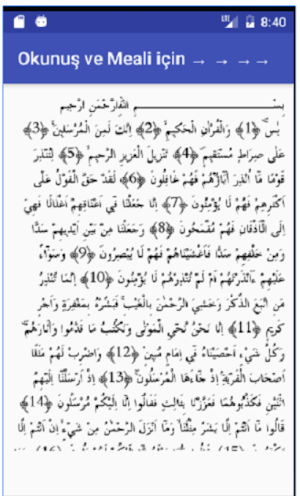 8:40
Okunuş ve Meali için → → → →
بِسْمِ اللّٰهِ الرَّحْمٰنِ الرَّحِيمِ
يٰسٓ ﴿1﴾ وَالْقُرْاٰنِ الْحَكِيمِ ﴿2﴾ اِنَّكَ لَمِنَ الْمُرْسَلِينَ ﴿3﴾
عَلٰى صِرَاطٍ مُسْتَقِيمٍ ﴿4﴾ تَنْزِيلَ الْعَزِيزِ الرَّحِيمِ ﴿5﴾ لِتُنْذِرَ
قَوْمًا مَٓا اُنْذِرَ اٰبَٓاؤُهُمْ فَهُمْ غَافِلُونَ ﴿6﴾ لَقَدْ حَقَّ الْقَوْلُ عَلٰٓى
اَكْثَرِهِمْ فَهُمْ لَا يُؤْمِنُونَ ﴿7﴾ اِنَّا جَعَلْنَا فِٓي اَعْنَاقِهِمْ اَغْلَالًا فَهِيَ
اِلَى الْاَذْقَانِ فَهُمْ مُقْمَحُونَ ﴿8﴾ وَجَعَلْنَا مِنْ بَيْنِ اَيْدِيهِمْ سَدًّا
وَمِنْ خَلْفِهِمْ سَدًّا فَاَغْشَيْنَاهُمْ فَهُمْ لَا يُبْصِرُونَ ﴿9﴾ وَسَوَٓاءٌ
عَلَيْهِمْ ءَاَنْذَرْتَهُمْ اَمْ لَمْ تُنْذِرْهُمْ لَا يُؤْمِنُونَ ﴿10﴾ اِنَّمَا تُنْذِرُ
مَنِ اتَّبَعَ الذِّكْرَ وَخَشِيَ الرَّحْمٰنَ بِالْغَيْبِ فَبَشِّرْهُ بِمَغْفِرَةٍ وَاَجْرٍ
كَرِيمٍ ﴿11﴾ اِنَّا نَحْنُ نُحْيِ الْمَوْتٰى وَنَكْتُبُ مَا قَدَّمُوا وَاٰثَارَهُمْ
وَكُلَّ شَيْءٍ اَحْصَيْنَاهُ فِٓي اِمَامٍ مُبِينٍ ﴿12﴾ وَاضْرِبْ لَهُمْ مَثَلًا
اَصْحَابَ الْقَرْيَةِ اِذْ جَٓاءَهَا الْمُرْسَلُونَ ﴿13﴾ اِذْ اَرْسَلْنَٓا اِلَيْهِمُ
اثْنَيْنِ فَكَذَّبُوهُمَا فَعَزَّزْنَا بِثَالِثٍ فَقَالُٓوا اِنَّٓا اِلَيْكُمْ مُرْسَلُونَ ﴿14﴾
قَالُوا مَٓا اَنْتُمْ اِلَّا بَشَرٌ مِثْلُنَا وَمَٓا اَنْزَلَ الرَّحْمٰنُ مِنْ شَيْءٍ اِنْ اَنْتُمْ اِلَّا